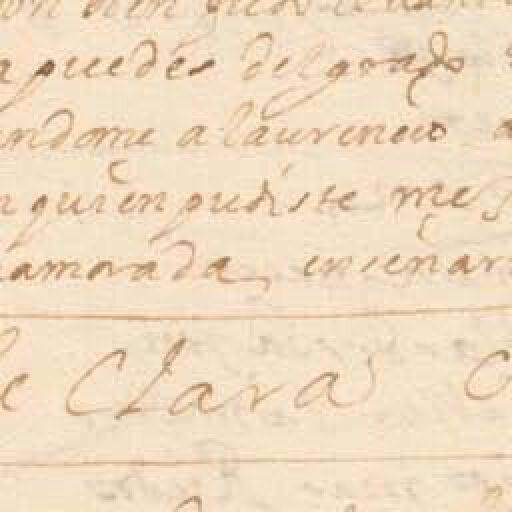 a puedes del grado
endome a laurencio a
n quien pudiste me
amorada, enseñar
Clara